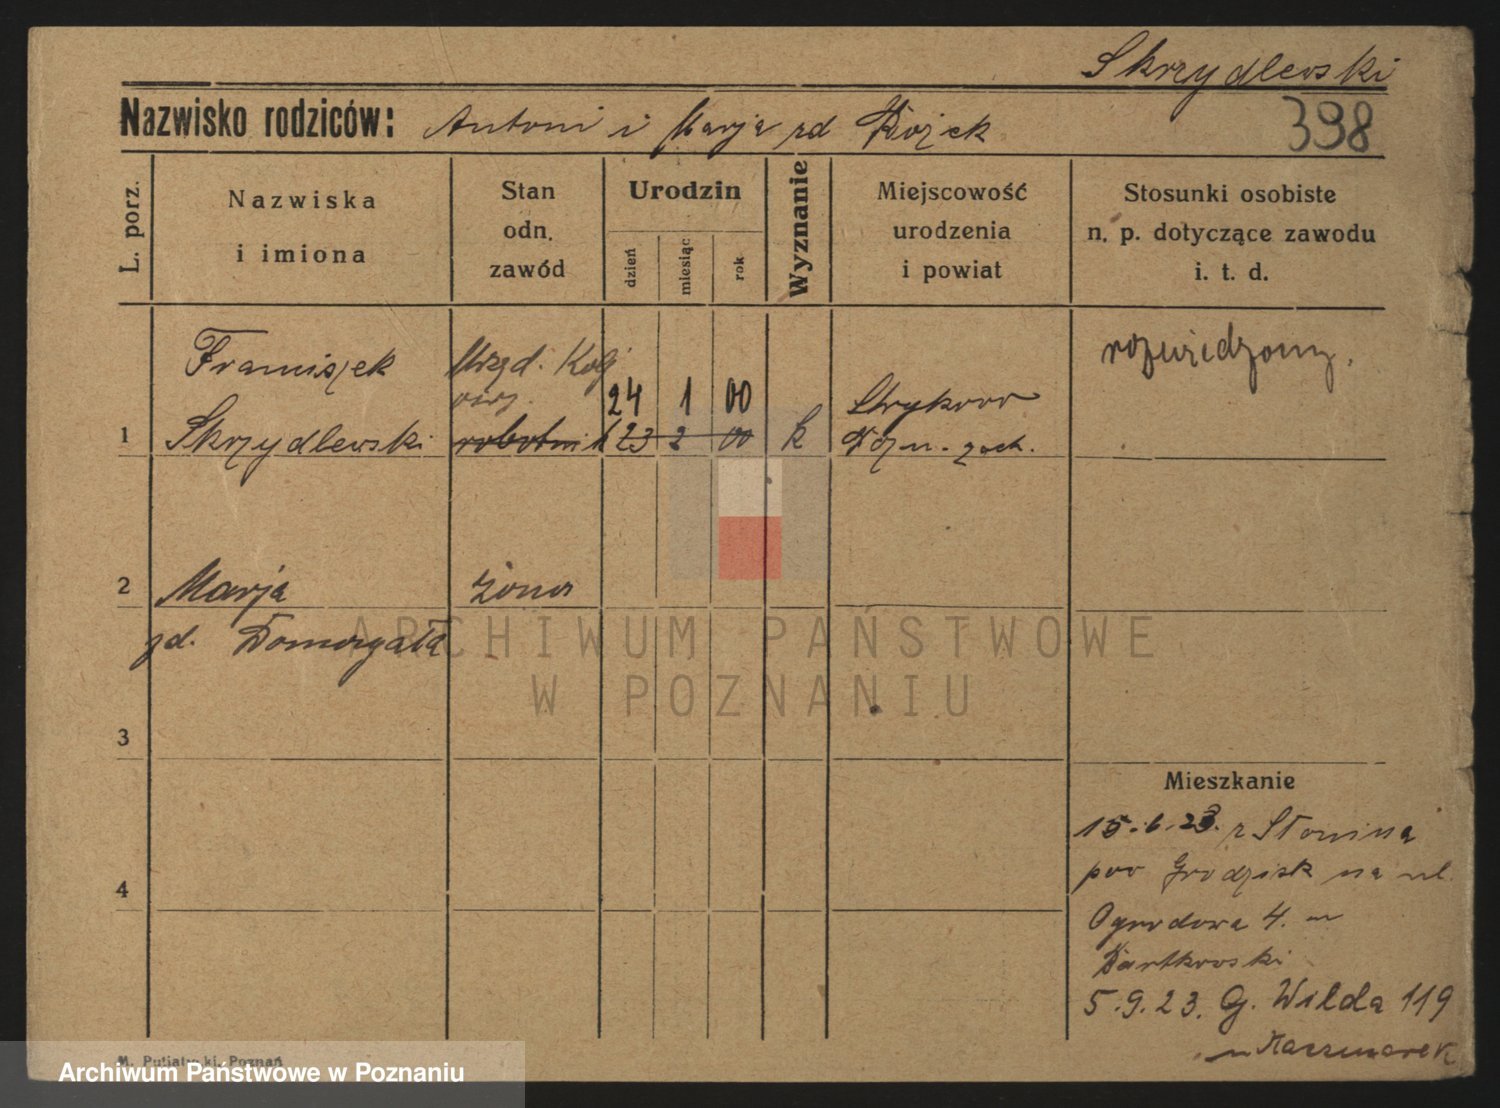 Skrzydlewski
Nazwisko rodziców: Antoni i Marja zd Kozek
398
L. porz.
Nazwiska
i imiona
Stan
odn.
zawód
Urodzin
dzień
miesiąc
rok
Wyznanie
Miejscowość
urodzenia
i powiat
Stosunki osobiste
n. p. dotyczące zawodu
i. t. d.
1
Franciszek
Skrzydlewski
Urzęd. Kolej
robotnik
24 1 00
23 2 00
k
Strykowo
Pozn. zach.
rozwiedziony.
2
Marja
zd. Domagała
żona
3
4
Mieszkanie
15.6.23. z Słonina
pow Grodzisk na ul.
Ogrodowa 4. u
Bartkowski
5.9.23. G. Wilda 119
u Kaczmarek
Poznań
ARCHIWUM PAŃSTWOWE
W POZNANIU
Archiwum Państwowe w Poznaniu